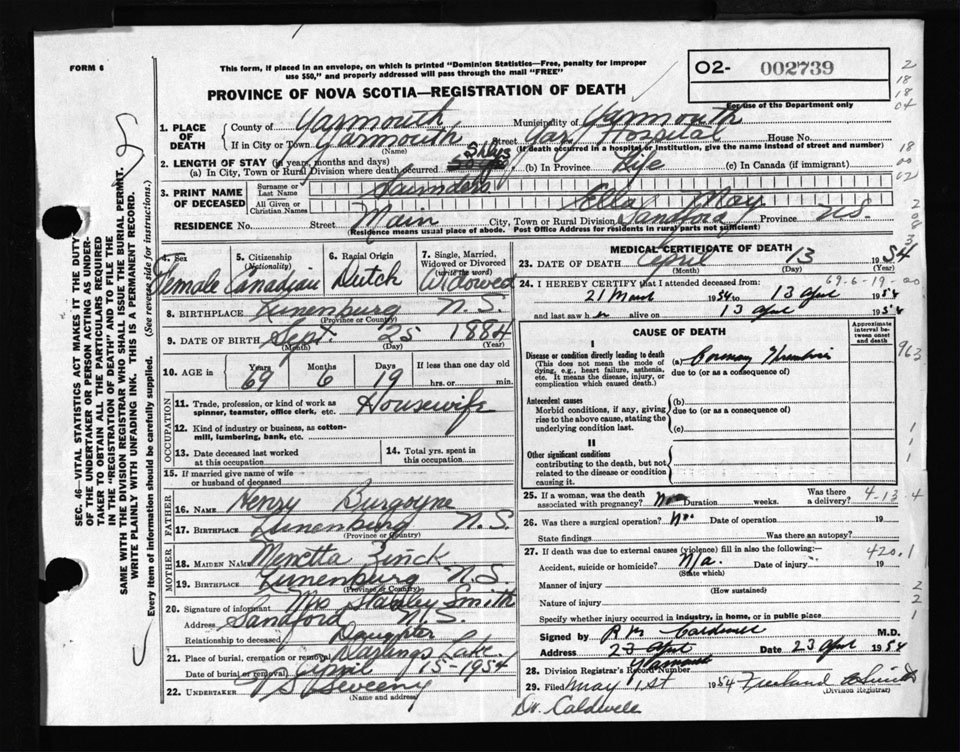 FORM 6
This form, if placed in an envelope, on which is printed "Dominion Statistics—Free, penalty for improper
use $50," and properly addressed will pass through the mail "FREE"
02- 002739
For use of the Department only
PROVINCE OF NOVA SCOTIA—REGISTRATION OF DEATH
1. PLACE OF DEATH
County of Yarmouth Municipality of Yarmouth
If in City or Town Yarmouth Street Yar. Hospital House No.
(Name) (If death occurred in a hospital or institution, give the name instead of street and number)
2. LENGTH OF STAY (in years, months and days)
(a) In City, Town or Rural Division where death occurred days (b) In Province Life (c) In Canada (if immigrant)
3. PRINT NAME OF DECEASED
Surname or Last Name Saunders
All Given or Christian Names Ella May
RESIDENCE No. Street Main City, Town or Rural Division Sandford Province N.S.
(Residence means usual place of abode. Post Office Address for residents in rural parts not sufficient)
4. Sex Female
5. Citizenship (Nationality) Canadian
6. Racial Origin Dutch
7. Single, Married, Widowed or Divorced (write the word) Widowed
8. BIRTHPLACE Lunenburg N.S.
(Province or Country)
9. DATE OF BIRTH Sept. 25 1884
(Month) (Day) (Year)
10. AGE in Years 69 Months 6 Days 19 If less than one day
hrs. or min.
OCCUPATION
11. Trade, profession, or kind of work as spinner, teamster, office clerk, etc. Housewife
12. Kind of industry or business, as cotton-mill, lumbering, bank, etc.
13. Date deceased last worked at this occupation
14. Total yrs. spent in this occupation
15. If married give name of wife or husband of deceased
FATHER
16. NAME Henry Burgoyne
17. BIRTHPLACE Lunenburg N.S.
(Province or Country)
MOTHER
18. MAIDEN NAME Menetta Zinck
19. BIRTHPLACE Lunenburg N.S.
(Province or Country)
20. Signature of informant Mrs Stanley Smith
Address Sandford N.S.
Relationship to deceased Daughter
21. Place of burial, cremation or removal Darlings Lake.
Date of burial or removal April 15-1954
22. UNDERTAKER Sweeny
(Name and address)
MEDICAL CERTIFICATE OF DEATH
23. DATE OF DEATH April 13 1954
(Month) (Day) (Year)
69-6-19-00
24. I HEREBY CERTIFY that I attended deceased from:
21 March 1954 to 13 April 1954
and last saw her alive on 13 April 1954
CAUSE OF DEATH
Approximate interval between onset and death
I
Disease or condition directly leading to death
(This does not mean the mode of dying, e.g., heart failure, asthenia, etc. It means the disease, injury, or complication which caused death.)
(a)
due to (or as a consequence of)
963
Antecedent causes
Morbid conditions, if any, giving rise to the above cause, stating the underlying condition last.
(b)
due to (or as a consequence of)
(c)
II
Other significant conditions
contributing to the death, but not related to the disease or condition causing it.
25. If a woman, was the death associated with pregnancy? No Duration weeks. Was there a delivery? 4-13 4
26. Was there a surgical operation? No. Date of operation 19
State findings Was there an autopsy?
27. If death was due to external causes (violence) fill in also the following:—
420.1
Accident, suicide or homicide? N/a. Date of injury 19
(State which)
Manner of injury
(How sustained)
Nature of injury
Specify whether injury occurred in industry, in home, or in public place
Signed by Caldwell M.D.
Address Yarmouth Date 23 April 1954
28. Division Registrar's Record Number
29. Filed May 1st 1954 Smith
(Division Registrar)
Dr. Caldwell
SEC. 46—VITAL STATISTICS ACT MAKES IT THE DUTY
OF THE UNDERTAKER OR PERSON ACTING AS UNDER-
TAKER TO OBTAIN ALL THE PARTICULARS REQUIRED
IN THE "REGISTRATION OF DEATH" AND TO FILE THE
SAME WITH THE DIVISION REGISTRAR WHO SHALL ISSUE THE BURIAL PERMIT.
WRITE PLAINLY WITH UNFADING INK. THIS IS A PERMANENT RECORD.
Every item of information should be carefully supplied. (See reverse side for instructions.)